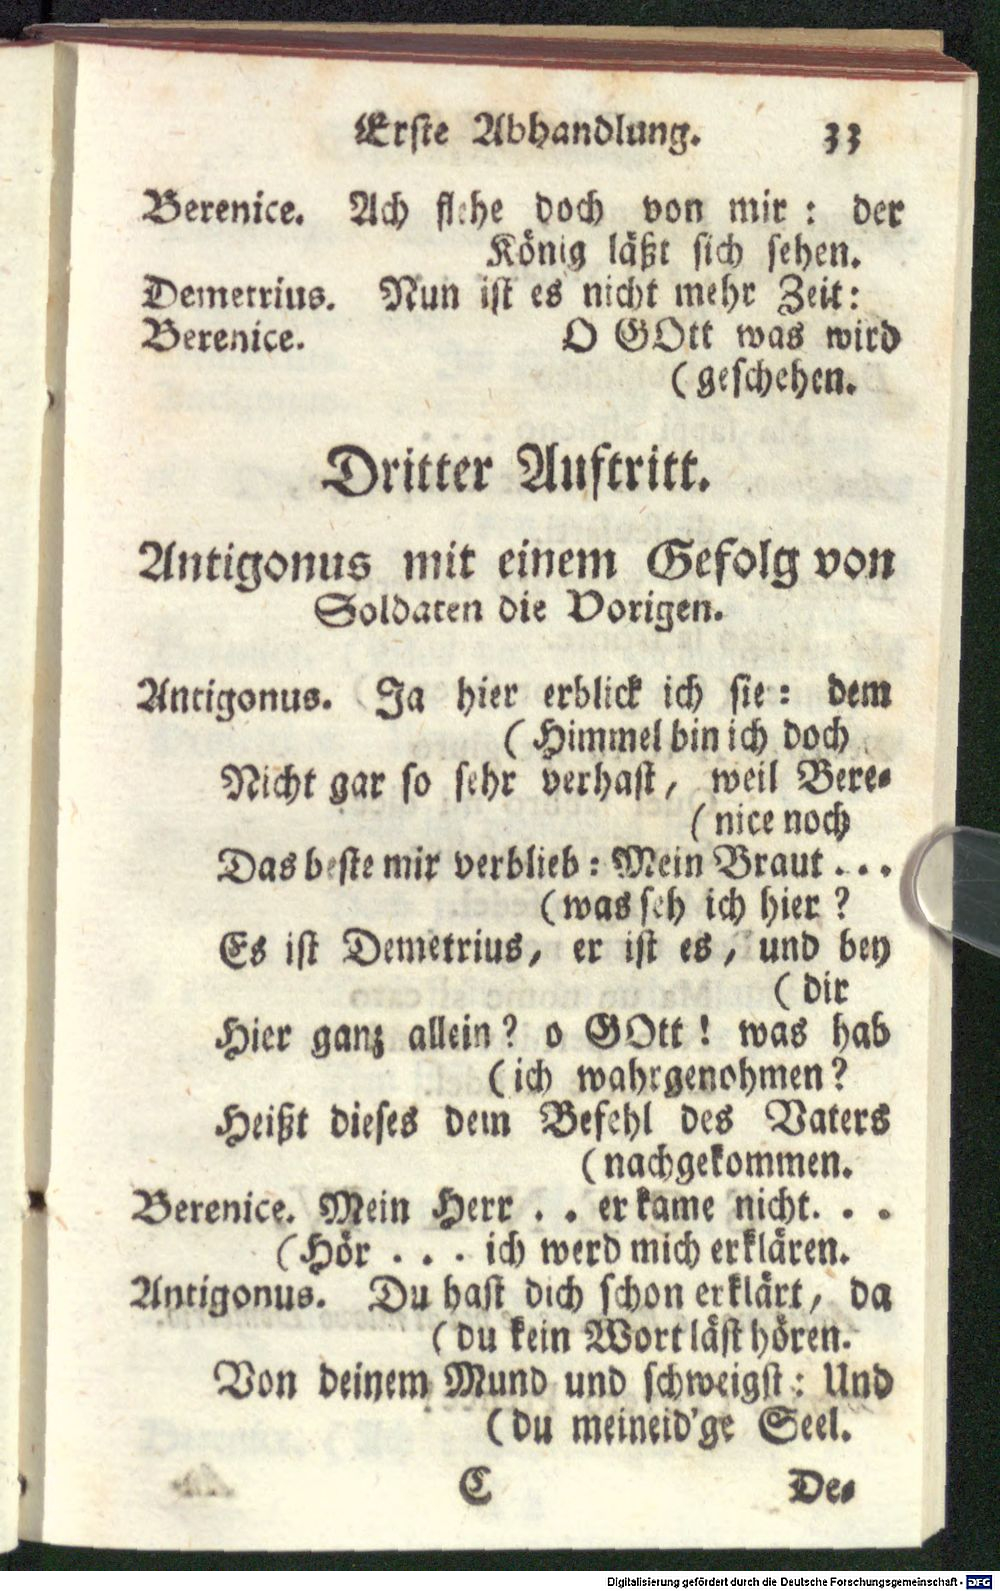 Erste Abhandlung. 33
Berenice. Ach flehe doch von mir : der
König läßt sich sehen.
Demetrius. Nun ist es nicht mehr Zeit:
Berenice. O GOtt was wird
(geschehen.
Dritter Auftritt.
Antigonus mit einem Gefolg von
Soldaten die Vorigen.
Antigonus. Ja hier erblick ich sie : dem
(Himmel bin ich doch
Nicht gar so sehr verhast, weil Bere-
(nice noch
Das beste mir verblieb : Mein Braut . . .
(was seh ich hier ?
Es ist Demetrius, er ist es, und bey
(dir
Hier ganz allein ? o GOtt ! was hab
(ich wahrgenohmen ?
Heißt dieses dem Befehl des Vaters
(nachgekommen.
Berenice. Mein Herr . . er kame nicht. . .
(Hör . . . ich werd mich erklären.
Antigonus. Du hast dich schon erklärt, da
(du kein Wort läst hören.
Von deinem Mund und schweigst : Und
(du meineid'ge Seel.
C De-
Digitalisierung gefördert durch die Deutsche Forschungsgemeinschaft - DFG